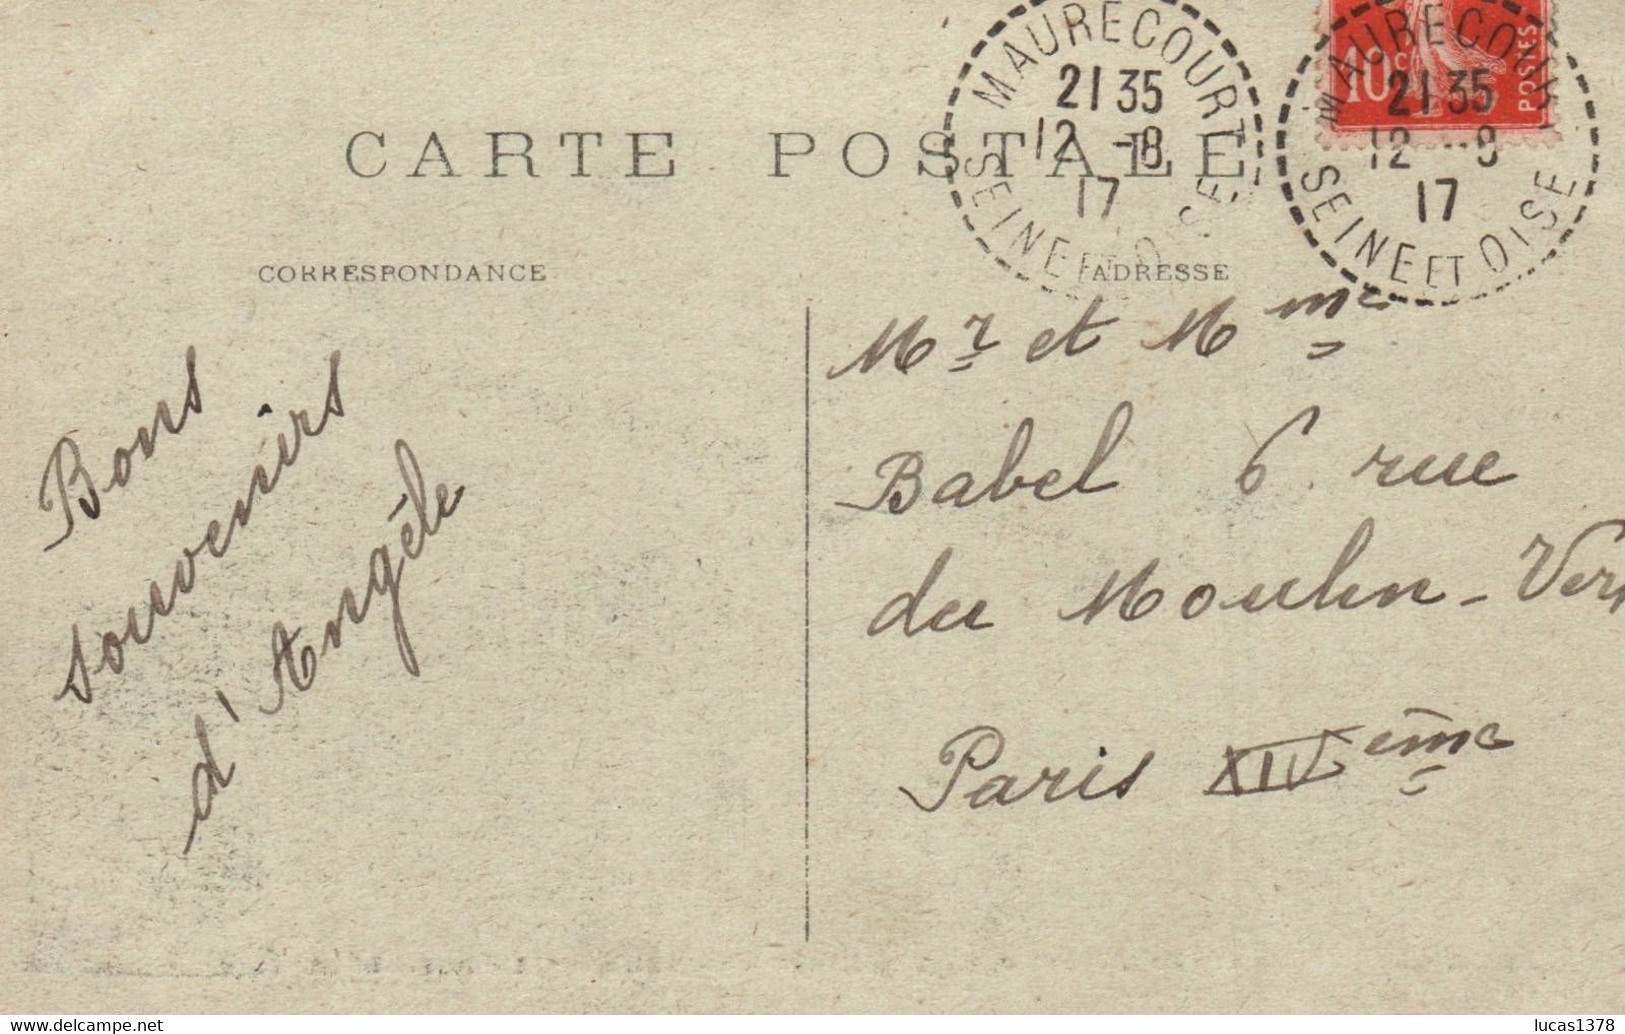 CARTE POSTALE
MAURECOURT
21 35
12 -8
17
SEINE ET OISE
MAURECOURT
21 35
12 -8
17
SEINE ET OISE
10c
POSTES
CORRESPONDANCE
ADRESSE
Bons
souvenirs
d'Angèle
Mr et Mme
Babel 6. rue
du Moulin-Ver
Paris XIVème
www.delcampe.net
lucas1378